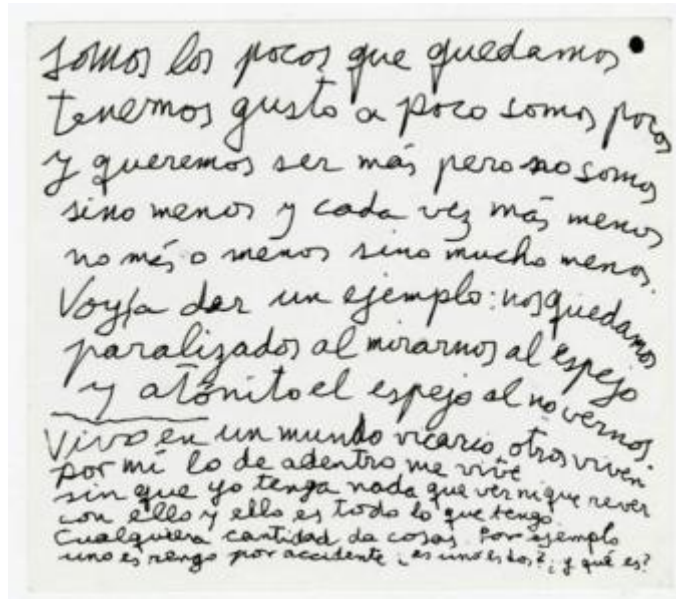 somos los pocos que quedamos
tenemos gusto a poco somos pocos
y queremos ser más pero no somos
sino menos y cada vez más menos
no más o menos sino mucho menos.
Voy a dar un ejemplo: nos quedamos
paralizados al mirarnos al espejo
y atónito el espejo al no vernos.
Vivo en un mundo vicario, otros viven
por mí lo de adentro me vive
sin que yo tenga nada que ver ni que rever
con ello y ello es todo lo que tengo.
Cualquiera cantidad da cosas. Por ejemplo
uno es rengo por accidente ¿es uno es dos? ¿y qué es?